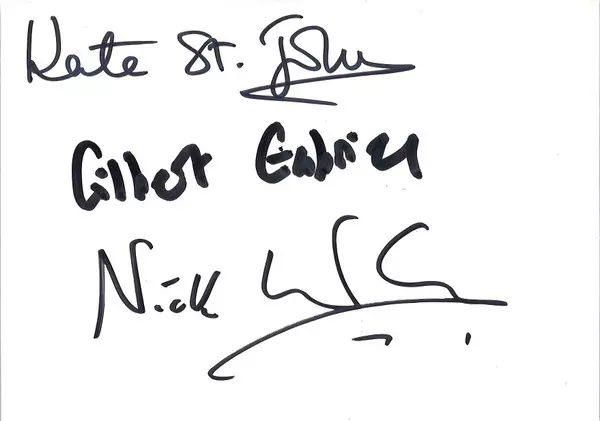 Kate St. John
Gilbert Gabriel
Nick